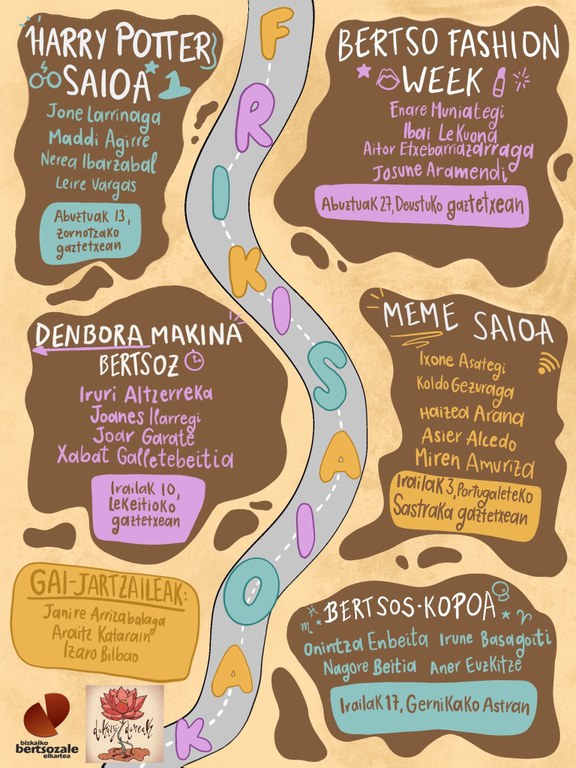 FRIKISAIOAK
HARRY POTTER
SAIOA
Jone Larrinaga
Maddi Agirre
Nerea Ibarzabal
Leire Vargas
Abuztuak 13,
zornotzako
gaztetxean
BERTSO FASHION
WEEK
Enare Muniategi
Ibai Lekuona
Aitor Etxebarriazarraga
Josune Aramendi
Abuztuak 27, Deustuko gaztetxean
DENBORA MAKINA
BERTSOZ
Iruri Altzerreka
Joanes Illarregi
Joar Garate
Xabat Galletebeitia
Irailak 10,
Lekeitioko
gaztetxean
MEME SAIOA
Ixone Asategi
Koldo Gezuraga
Haizea Arana
Asier Alcedo
Miren Amuriza
Irailak 3, Portugaleteko
Sastraka gaztetxean
GAI-JARTZAILEAK:
Janire Arrizabalaga
Araitz Katarain
Izaro Bilbao
BERTSOS-KOPOA
Onintza Enbeita Irune Basagoiti
Nagore Beitia Aner Euzkitze
Irailak 17, Gernikako Astran
bizkaiko
bertsozale
elkartea